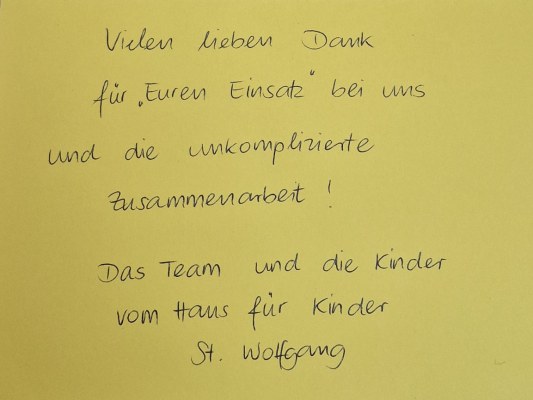 Vielen lieben Dank
für „Euren Einsatz" bei uns
und die unkomplizierte
Zusammenarbeit!
Das Team und die Kinder
vom Haus für Kinder
St. Wolfgang